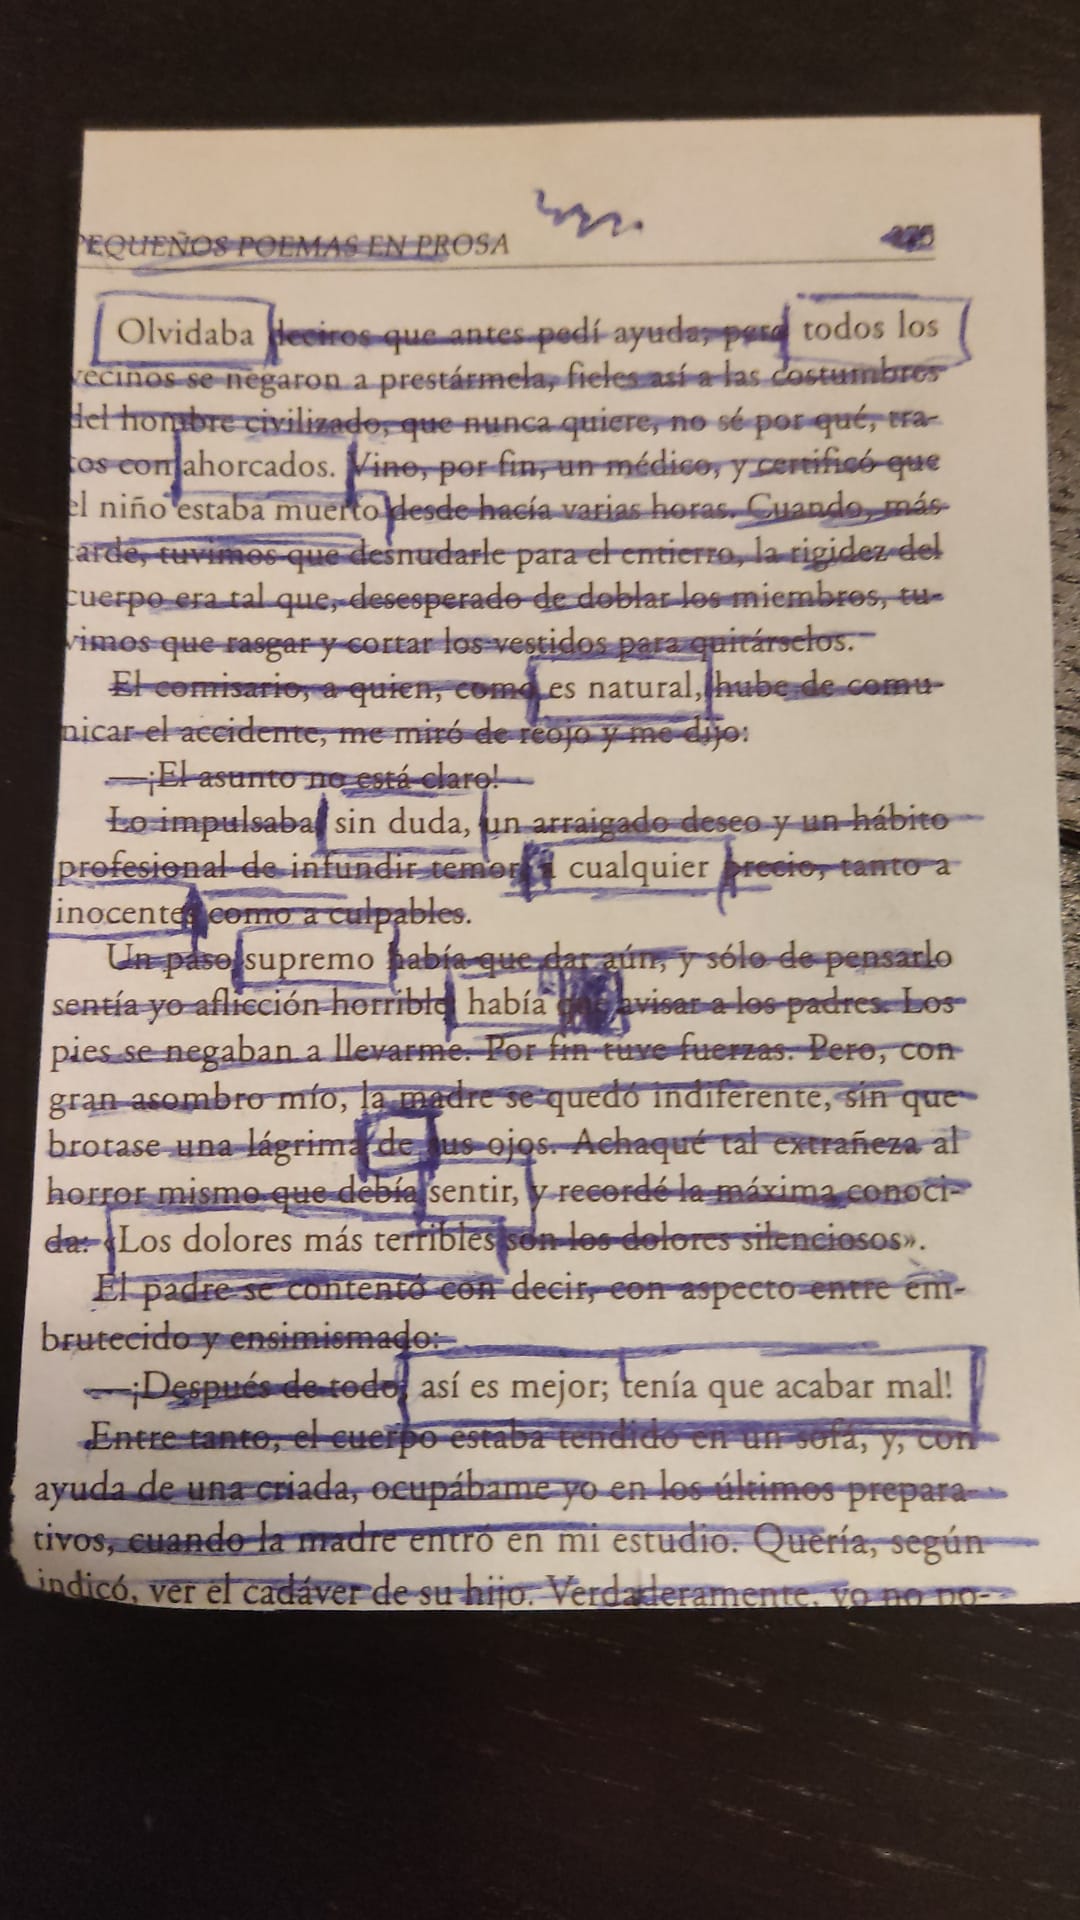 PEQUEÑOS POEMAS EN PROSA
Olvidaba deciros que antes pedí ayuda; pero todos los
vecinos se negaron a prestármela, fieles así a las costumbres
del hombre civilizado, que nunca quiere, no sé por qué, tra-
tos con ahorcados. Vino, por fin, un médico, y certificó que
el niño estaba muerto desde hacía varias horas. Cuando, más
tarde, tuvimos que desnudarle para el entierro, la rigidez del
cuerpo era tal que, desesperado de doblar los miembros, tu-
vimos que rasgar y cortar los vestidos para quitárselos.
El comisario, a quien, como es natural, hube de comu-
nicar el accidente, me miró de reojo y me dijo:
—¡El asunto no está claro!
Lo impulsaba sin duda, un arraigado deseo y un hábito
profesional de infundir temor, a cualquier precio, tanto a
inocentes como a culpables.
Un paso supremo había que dar aún, y sólo de pensarlo
sentía yo aflicción horrible había que avisar a los padres. Los
pies se negaban a llevarme. Por fin tuve fuerzas. Pero, con
gran asombro mío, la madre se quedó indiferente, sin que
brotase una lágrima de sus ojos. Achaqué tal extrañeza al
horror mismo que debía sentir, y recordé la máxima conoci-
da: «Los dolores más terribles son los dolores silenciosos».
El padre se contentó con decir, con aspecto entre em-
brutecido y ensimismado:
—¡Después de todo, así es mejor; tenía que acabar mal!
Entre tanto, el cuerpo estaba tendido en un sofá, y, con
ayuda de una criada, ocupábame yo en los últimos prepara-
tivos, cuando la madre entró en mi estudio. Quería, según
indicó, ver el cadáver de su hijo. Verdaderamente, yo no po-